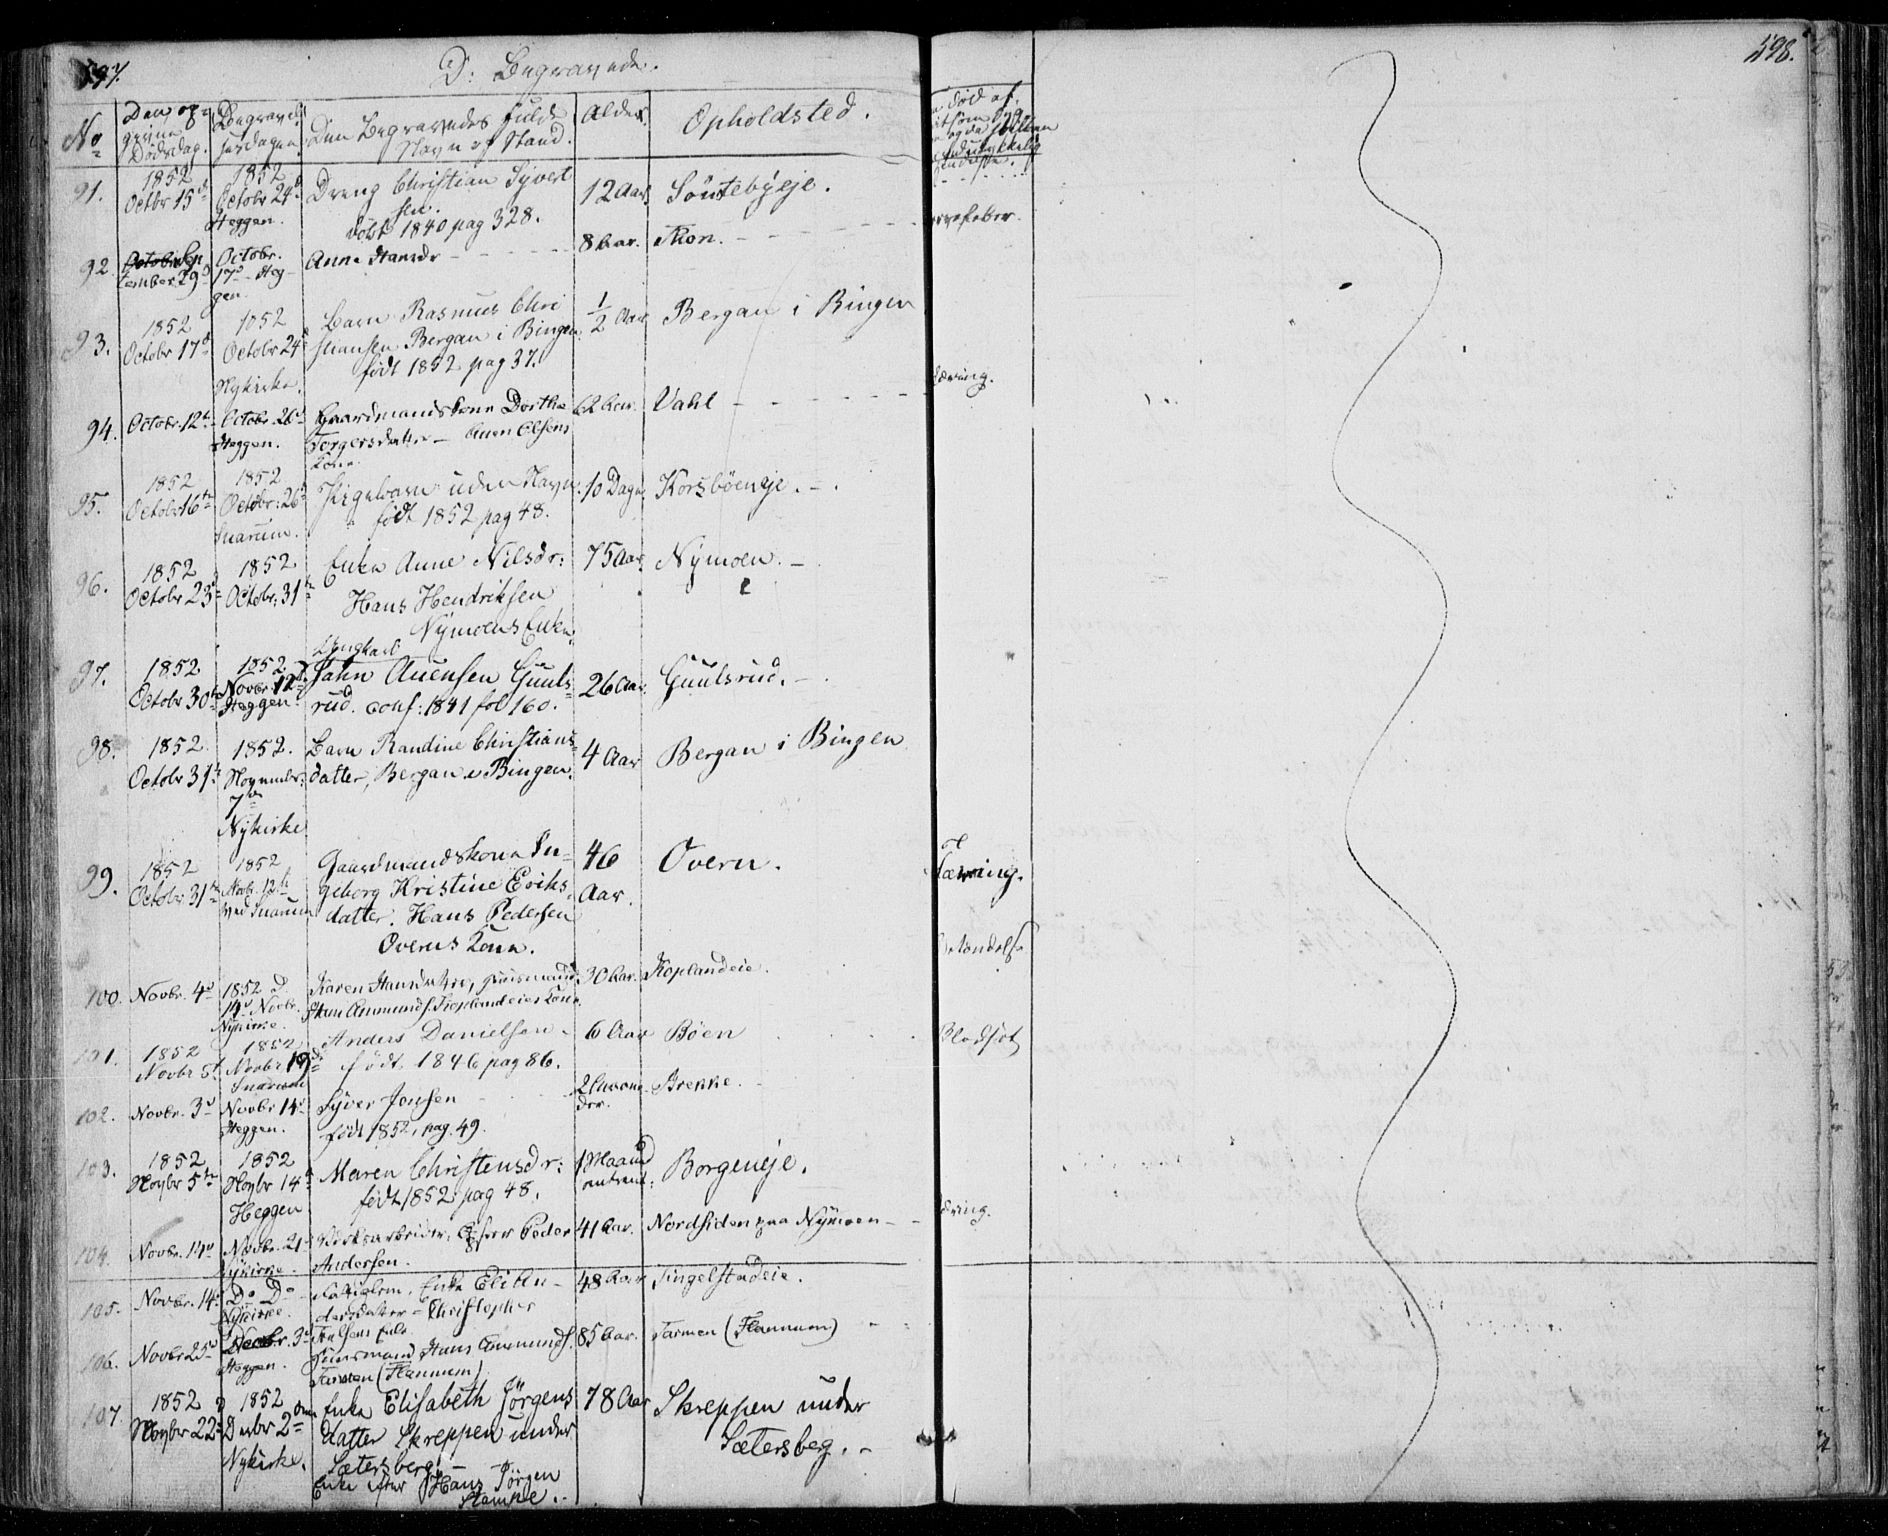 597.
D: Begravede.
598.
No
Den op-
givne
Dødsdag.
Begravel-
sesdagen
Den Begravedes fulde
Navn og Stand.
Alder.
Opholdsted.
død af
91.
1852
Octbr 15d
1852
Octobr 24d
Heggen.
Dreng Christian Syvert
sen.
døbt 1840 pag 328.
12 Aar
92.
Sep
tember 29d
Octobr.
17d Heg-
gen.
Anna Hansdr
8 Aar.
Thon.
93.
1852
Octobr 17d
1852
Octobr 24d
Nykirke.
Barn Rasmus Chri
stiansen Bergan i Bingen
født 1852 pag 37.
1/2 Aar
Bergan i Bingen
94.
Octobr. 12t
Octobr. 26d
Heggen.
Gaardmandskone Dorthe
Torgersdatter - Auen Olsens
Kone.
62 Aar.
Vahl
95.
1852
Octobr 16te
1852
Octobr: 26d
Snarum.
Pigebarn uden Navn.
født 1852 pag 48.
10 Dage
Korsbøeneje.
96.
1852
Octobr 23d
1852
Octobr: 31te
Enke Anne Nilsdr:
Hans Hendriksen
Nymoens Enke
75 Aar.
Nymoen.
97.
1852
Octobr 30te
1852
Novbr. 12te
Heggen
Ungkarl
Jahn Auensen Guuls-
rud. conf: 1841 fol 160.
26 Aar.
Guulsrud.
98.
1852
Octobr 31te
1852.
Novembr.
7de
Nykirke
Barn Randine Christians-
datter, Bergan i Bingen.
4 Aar
Bergan i Bingen
99.
1852
Octobr 31te
1852
Novbr. 12te
ved Snarum
Gaardmandskone In-
geborg Kristine Eriks-
datter. Hans Pedersen
Overns Kone.
46
Aar.
Overn.
100.
Novbr. 4d
1852 D.
14d Novbr.
Nykirke.
Karen Hansdatter, Huusmand
Hans Ammunds. Koplandeies Kone.
30 Aar.
Koplandeie.
101.
1852
Novbr 5t
1852
Novbr 19de
Snarum
Anders Danielsen
født 1846 pag 86.
6 Aar
Bøen
Blodsot
102.
Novbr. 3d
Novbr 14d
Heggen.
Syver Jonsen
født 1852, pag. 49.
2 Maane
der.
Brekke.
103.
1852
Novbr 5te
1852
Novbr 14d
Heggen
Maren Christensdr:
født 1852 pag 48.
1 Maaned
omtrent:
Borgeneje.
104.
Novbr. 14d
Novbr. 21d
Nykirke.
Peder
Andersen.
41 Aar.
Nordsiden paa Nymoen
105.
Novbr. 14d
Do Do
Nykirke.
Enke Eli An-
dersdatter - Christopher
48 Aar
Tingelstadeie.
106.
Novbr 25d
Decbr. 3d
Heggen.
Huusmand Hans Ammunds.
Tarmen (Flannum)
85 Aar.
Tarmen (Flannum)
107.
1852
Novbr 22d
1852
Decbr 2den
Nykirke.
Enke Elisabeth Jørgens
datter Skreppen under
Sætersberg.
Enke efter Hans Jørgen
Stampe.
78 Aar
Skreppen under
Sætersberg.